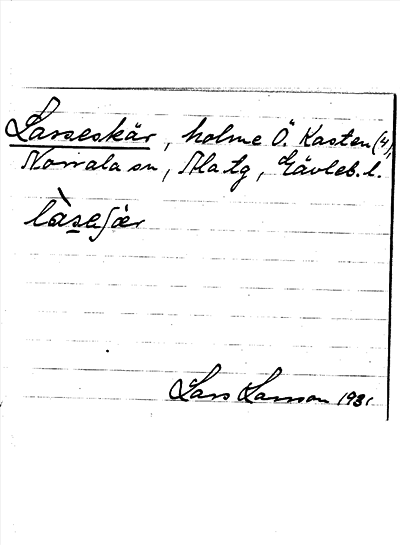 Larseskär, holme Ö. Kasten (4),
Norrala sn, Ala tg, Gävleb. l.
làsesʃær
Lars Larson 1931